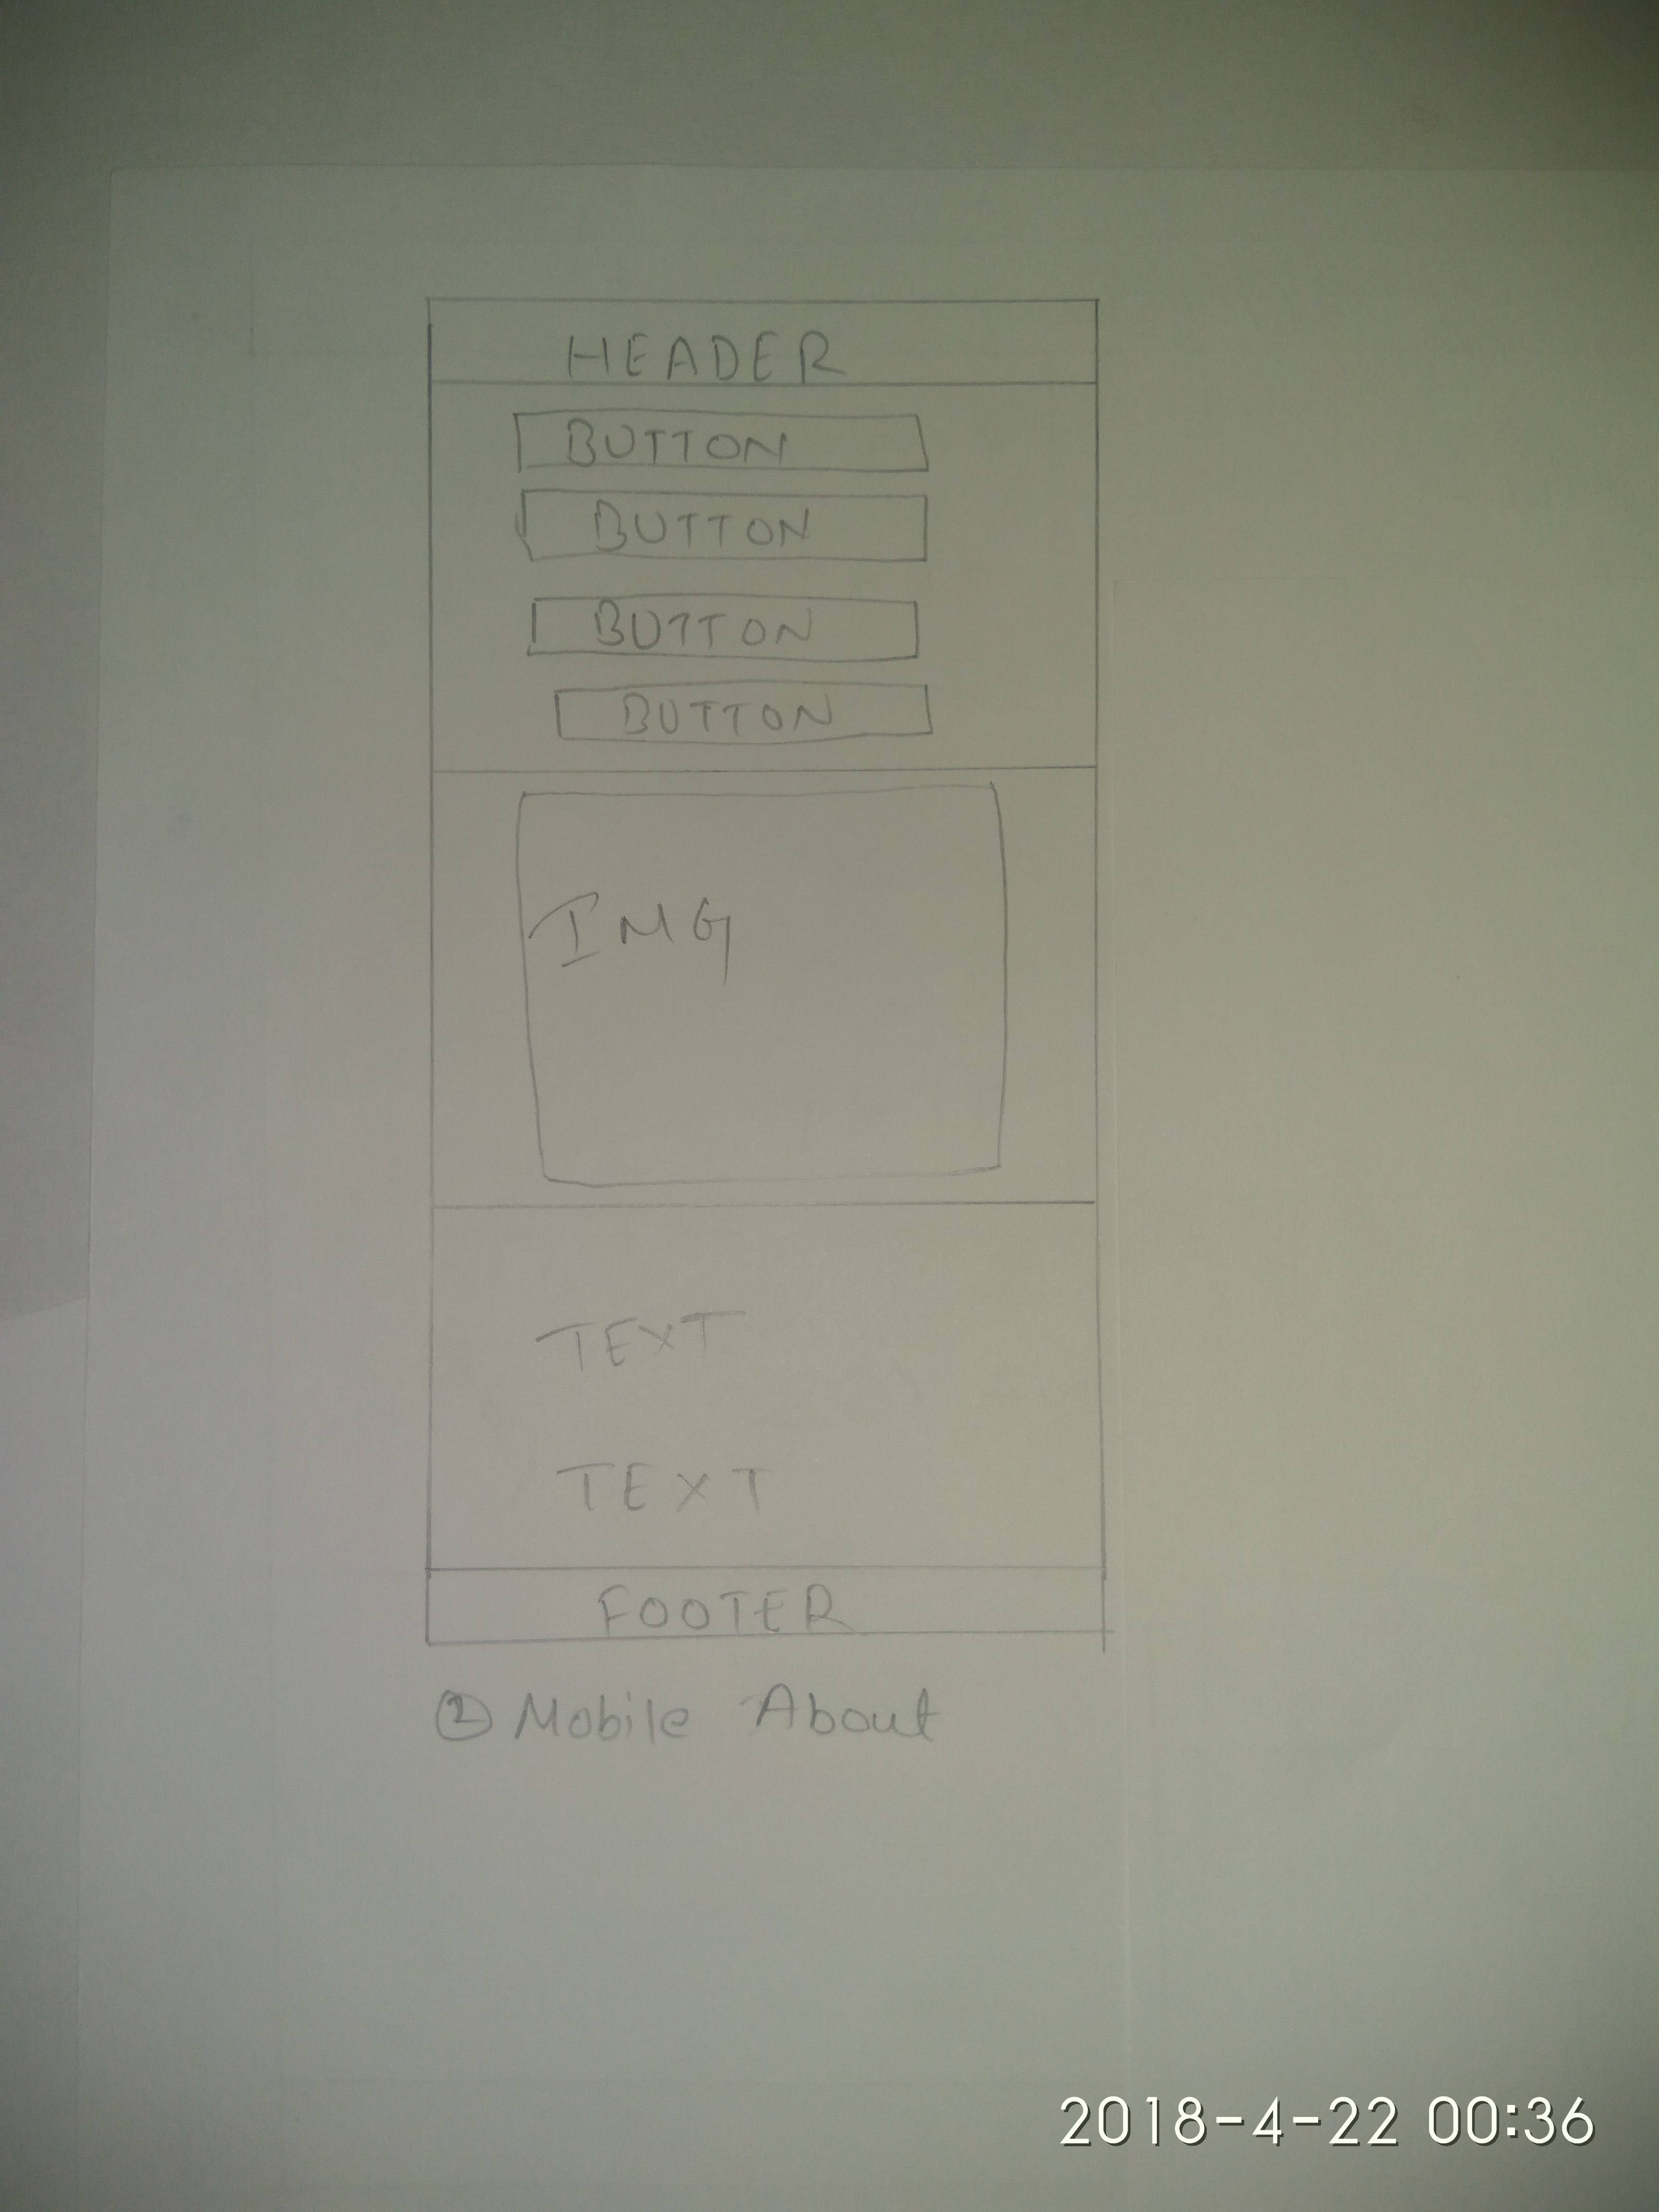 HEADER
BUTTON
BUTTON
BUTTON
BUTTON
IMG
TEXT
TEXT
FOOTER
② Mobile About
2018-4-22 00:36